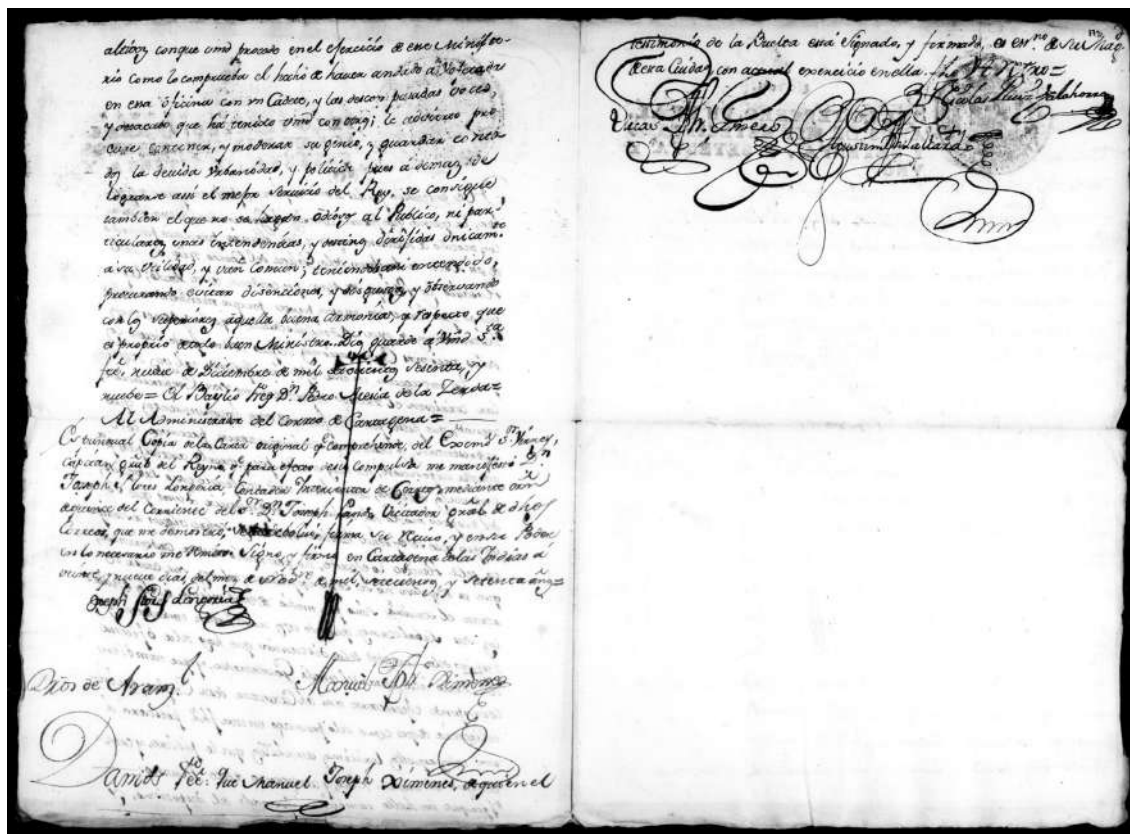 conque vmd procede en el exercicio de ese Ministe-
rio como lo comprueba el hecho de haver andado a
en esa oficina con vn Cadete, y las descompasadas voces,
y que há tenido vmd con le advierto pro
cure contener, y moderar su genio, y guardar con to
dos la devida vrbanidad, y politica pues a demas de
lograrse assi el mejor servicio del Rey, se consigue
tambien el que no se hagan odiosas al Publico, ni par-
ticulares unas Yntendencias, y dirigidas vnicam.te
a su vtilidad, y vien comun; teniendolo assi entendido,
procurando evitar disenciones, y disgustos, y observando
con los superiores aquella buena armonia, y respecto, que
es proprio de todo buen Ministro. Dios guarde a Vmd S.ta
feé, nueve de Diciembre de mil setecientos sesenta, y
nuebe= El Baylio Frey D.n Pedro Mesia de la Zerda=
Al Administrador del Correo de Cartagena=
Es puntual Copia de la Carta original q.e comprehende, del Exemó S.r Virrey,
Capitan gral del Reyno q.e para efecto de su compulsa me manifestó D.n
Joseph Flores Longoria, Contador Interventor de Correos mediante orn
del Corriente del S.r D.n Joseph Pando, Visitador gral de dhos
Correos, que me demostró, firma su Recivo, y en su Poder
en lo necesario me remito. Signo, y firmo en Cartagena de las Yndias á
veinte, y nueve dias, del mes de Nov.re de mil, setecientos, y setenta años=
Joseph Flores Longoria
Dros de Aranz.l
Manuel Jph Ximenez
Damos feé: que Manuel Joseph Ximenes, de quien el
testimonio de la Buelta está signado, y firmado, es en.no de su Mag.d
de esta Ciudad con actual exercicio en ella. fho Vt Retro=
Nicolas Ruiz Calahorra
Agustin Gallardo